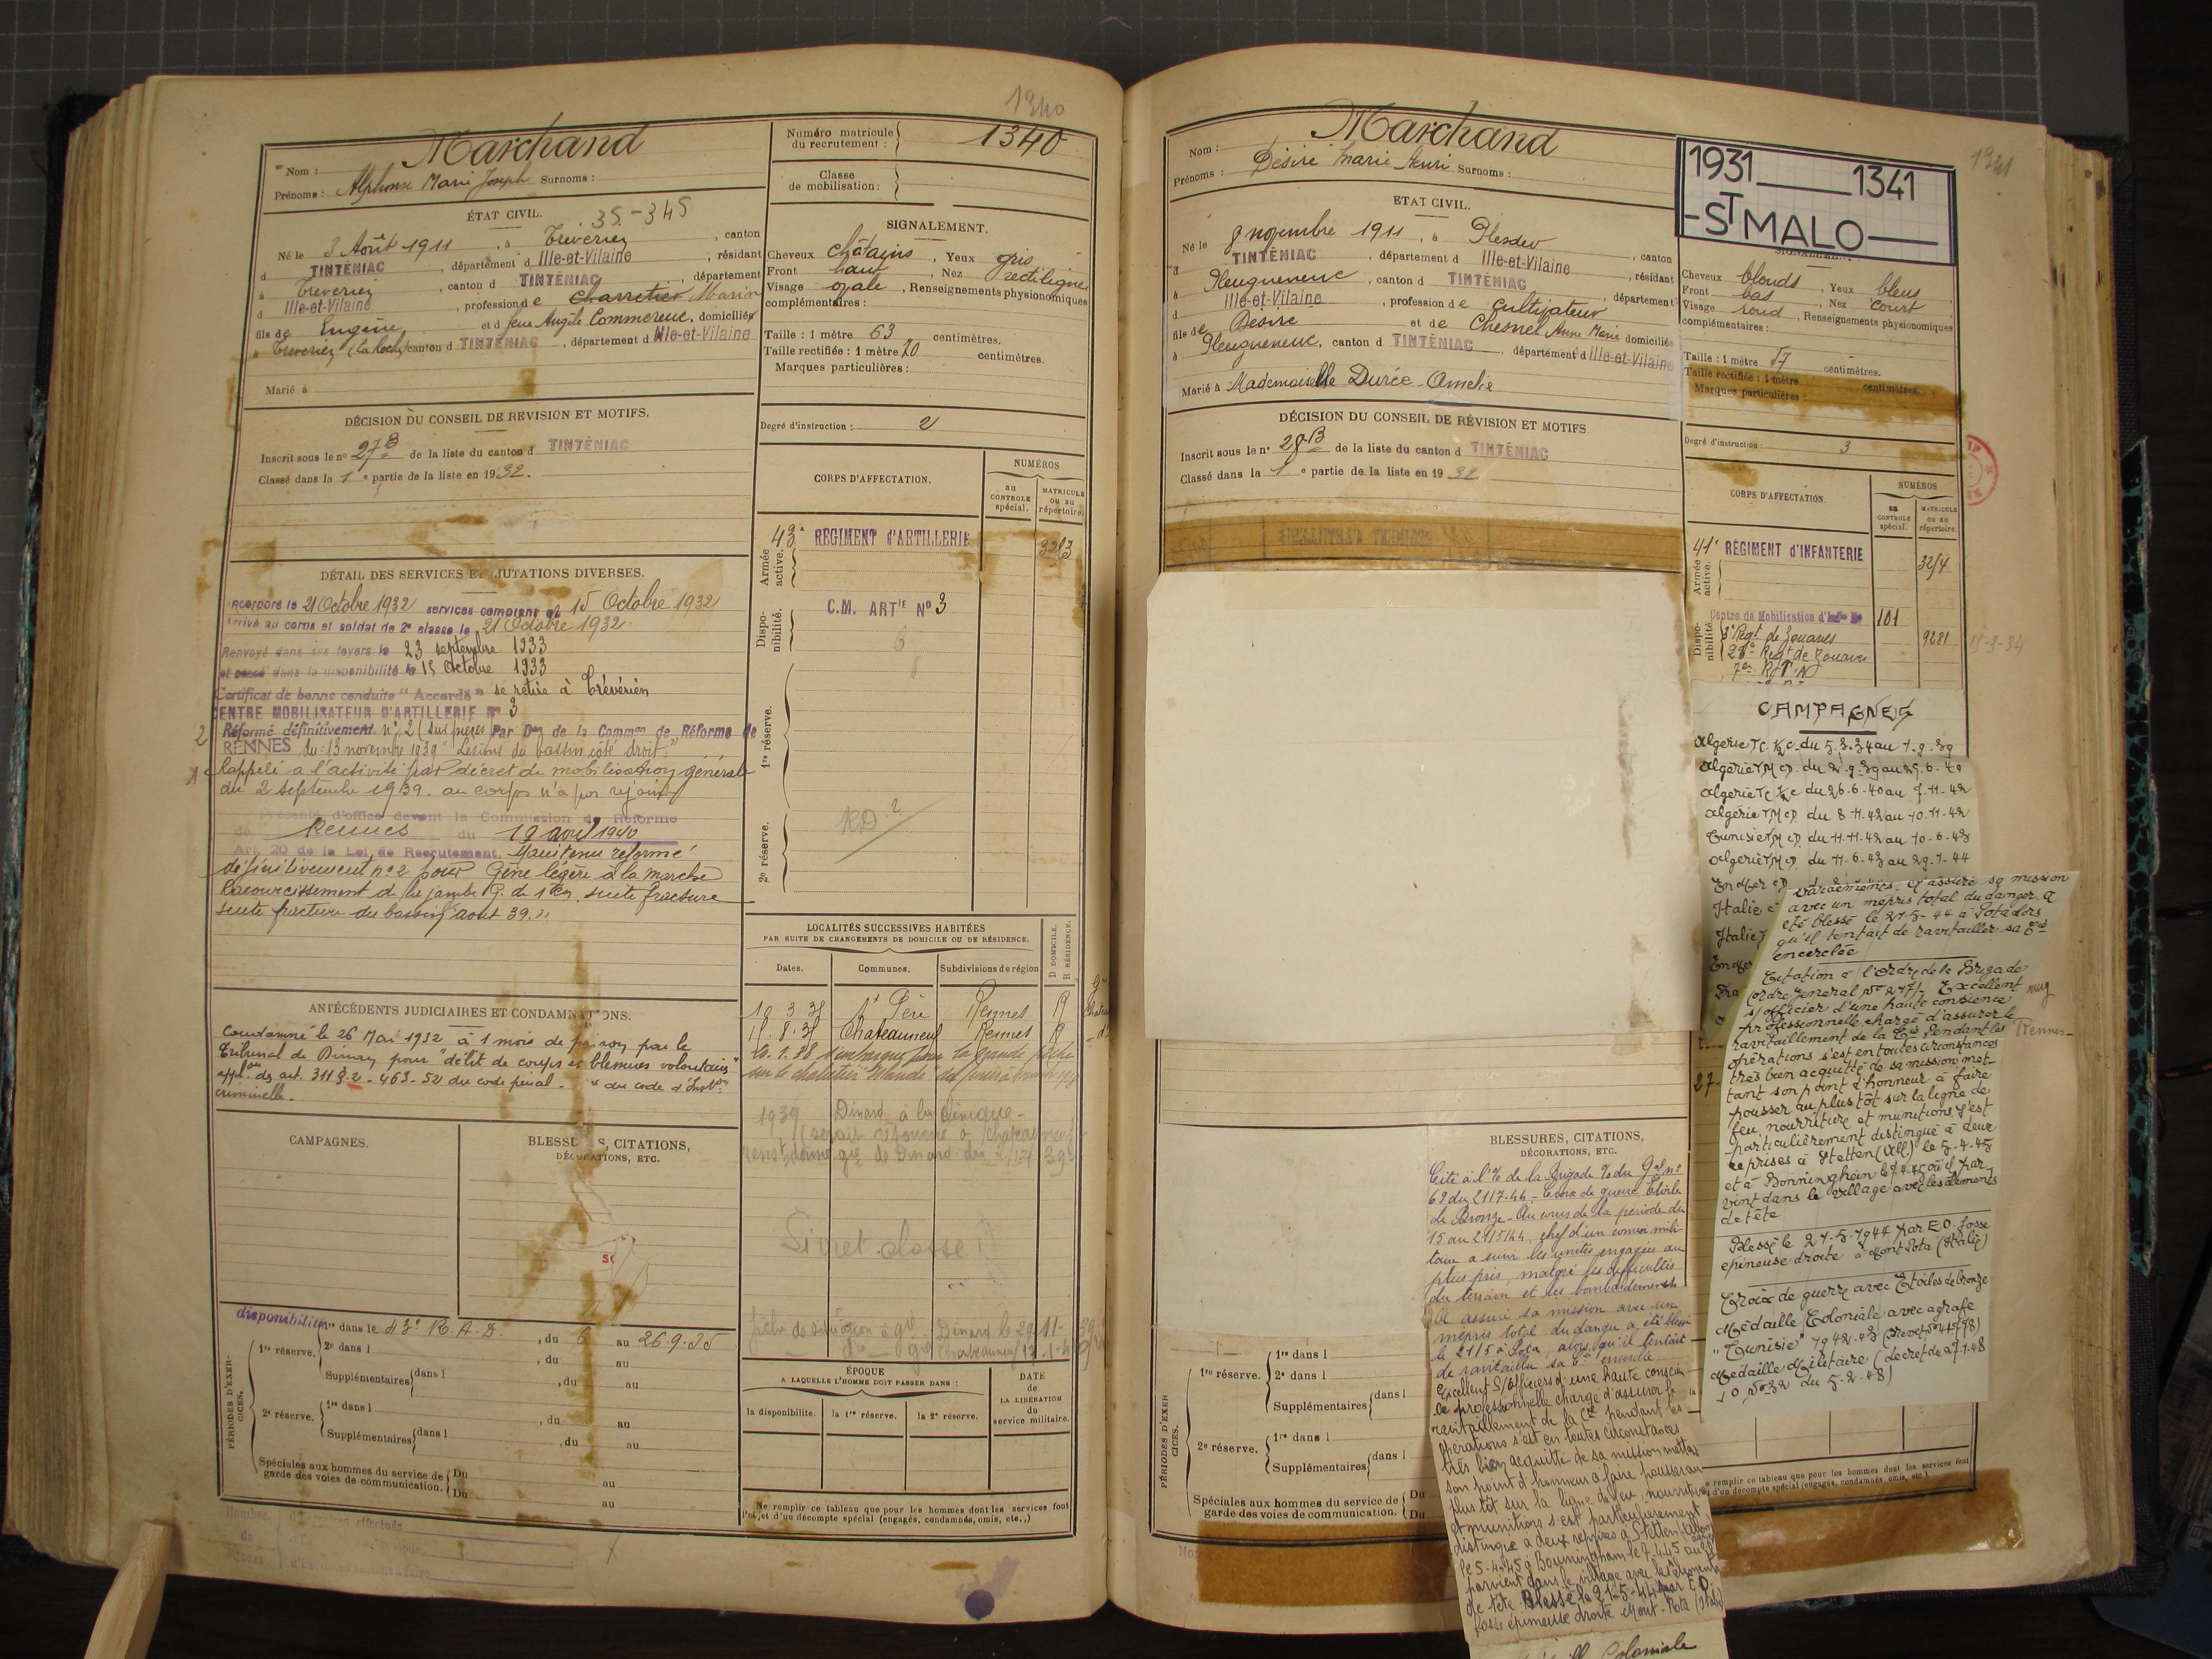 1340
Nom : Marchand
Prénoms : Alphonse Marie Joseph Surnoms :
Numéro matricule du recrutement : 1340
Classe de mobilisation :
ÉTAT CIVIL. 35-345
Né le 3 Août 1911, à Trévérien, canton
d TINTÉNIAC, département d Ille-et-Vilaine, résidant
à Trévérien, canton d TINTÉNIAC, département
d Ille-et-Vilaine, profession de Charretier Marin
fils de Eugène et d feue Angèle Commereuc, domiciliés
à Trévérien canton d TINTÉNIAC, département d Ille-et-Vilaine
Marié à
SIGNALEMENT.
Cheveux châtains, Yeux gris
Front haut, Nez rectiligne
Visage ovale, Renseignements physionomiques
complémentaires :
Taille : 1 mètre 63 centimètres.
Taille rectifiée : 1 mètre 70 centimètres.
Marques particulières :
Degré d'instruction : 2
DÉCISION DU CONSEIL DE RÉVISION ET MOTIFS.
Inscrit sous le n° 27 B de la liste du canton d TINTÉNIAC
Classé dans la 1e partie de la liste en 1932.
CORPS D'AFFECTATION.
NUMÉROS
au CONTROLE spécial.
MATRICULE ou au répertoire.
Armée active.
43e RÉGIMENT d'ARTILLERIE
Disponibilité.
C.M. ARTIE N° 3
1re réserve.
2e réserve.
RD 2
DÉTAIL DES SERVICES ET MUTATIONS DIVERSES.
Incorporé le 21 Octobre 1932 services comptant du 15 Octobre 1932
Arrivé au corps et soldat de 2e classe le 21 Octobre 1932.
Renvoyé dans ses foyers le 23 septembre 1933
et passé dans la disponibilité le 15 Octobre 1933
Certificat de bonne conduite "Accordé" se retire à Trévérien
CENTRE MOBILISATEUR D'ARTILLERIE N° 3
2 Réformé définitivement n° 2 (sur pièces) Par Don de la Common de Réforme de
RENNES du 13 novembre 1939 "Lésions du bassin côté droit."
1 Rappelé à l'activité par décret de mobilisation générale
du 2 septembre 1939. au corps n'a pas rejoint
Présenté d'office devant la Commission de Réforme
de Rennes du 19 avril 1940
Art. 20 de la Loi de Recrutement. Maintenu réformé
définitivement n° 2 pour Gêne légère à la marche
Raccourcissement de la jambe G. d 1 cm suite fracture
suite fracture du bassin août 39."
LOCALITÉS SUCCESSIVES HABITÉES
PAR SUITE DE CHANGEMENTS DE DOMICILE OU DE RÉSIDENCE.
D DOMICILE. R RÉSIDENCE.
Dates. Communes. Subdivisions de région
St Père Rennes R
Chateauneuf Rennes R
embarqué pour la grande pêche
1939 Dinard à la clinique
Livret classé
ANTÉCÉDENTS JUDICIAIRES ET CONDAMNATIONS.
Condamné le 26 Mai 1932 à 1 mois de prison par le
Tribunal de Dinan pour "délit de coups et blessures volontaires"
appl.on des art. 311 § 2 - 463 - 52 du code pénal - " du code d'Inst.on
criminelle.
CAMPAGNES.
BLESSURES, CITATIONS,
DÉCORATIONS, ETC.
PÉRIODES D'EXERCICES.
disponibilité
1re réserve. 1re dans le 43e R.A.D., du 6 au 26.9.35
2e dans l , du au
Supplémentaires dans l , du au
2e réserve. 1re dans l , du au
Supplémentaires dans l , du au
Spéciales aux hommes du service de garde des voies de communication. Du au
Du au
ÉPOQUE
A LAQUELLE L'HOMME DOIT PASSER DANS :
la disponibilité. la 1re réserve. la 2e réserve.
DATE DE LA LIBÉRATION du service militaire.
Ne remplir ce tableau que pour les hommes dont les services font
l'objet d'un décompte spécial (engagés, condamnés, omis, etc.,)
1341
Nom : Marchand
Prénoms : Désiré Marie Henri Surnoms :
1931 1341
-ST MALO-
ÉTAT CIVIL.
Né le 8 novembre 1911, à Plesder, canton
d TINTÉNIAC, département d Ille-et-Vilaine, résidant
à Pleugueneuc, canton d TINTÉNIAC, département
d Ille-et-Vilaine, profession de cultivateur
fils de Désiré et de Chesnel Anne Marie domiciliés
à Pleugueneuc, canton d TINTÉNIAC, département d Ille-et-Vilaine
Marié à Mademoiselle Durée Amélie
SIGNALEMENT.
Cheveux blonds, Yeux bleus
Front bas, Nez court
Visage rond, Renseignements physionomiques
complémentaires :
Taille : 1 mètre 57 centimètres.
Taille rectifiée : 1 mètre centimètres.
Marques particulières :
Degré d'instruction : 3
DÉCISION DU CONSEIL DE RÉVISION ET MOTIFS.
Inscrit sous le n° 28 B de la liste du canton d TINTÉNIAC
Classé dans la 1e partie de la liste en 1932
CORPS D'AFFECTATION.
NUMÉROS
au CONTROLE spécial.
MATRICULE ou au répertoire.
Armée active.
41e RÉGIMENT D'INFANTERIE
Disponibilité
Centre de Mobilisation d'Infie N° 101
3e Regt de Zouaves 9281
Regt de Zouaves
7e R.T.A
CAMPAGNES
Algérie T.C. 1/2 c. du 5.3.34 au 1.9.39
Algérie T.M.CD. du 2.9.39 au 25.6.40
Algérie T.C 1/2 c du 26.6.40 au 7.11.42
Algérie T.M.CD. du 8.11.42 au 10.11.42
Tunisie T.M.CD. du 11.11.42 au 10.6.43
Algérie T.M.CD. du 11.6.43 au 29.1.44
En Mer
Italie
Italie
En Mer
bardements. A assuré sa mission
avec un mépris total du danger. A
été blessé le 21-5-44 à Pota alors
qu'il tentait de ravitailler sa Cie
encerclée
Citation à l'Ordre de la Brigade
(ordre général N° 277). Excellent
s/officier d'une haute conscience
professionnelle, chargé d'assurer le
ravitaillement de la Cie. Pendant les
opérations s'est en toutes circonstances
très bien acquitté de sa mission, met-
tant son point d'honneur à faire
pousser au plus tôt sur la ligne de
feu, nourriture et munitions. S'est
particulièrement distingué à deux
reprises à Stetten (All.) le 5-4-45
et à Bonningheim le 7.4.45 où il par-
vint dans le village avec les éléments
de tête
Blessé le 21-5-1944 par E.O. fosse
épineuse droite à Mont Pota (Italie)
Croix de guerre avec Etoiles de bronze
Médaille Coloniale avec agrafe
"Tunisie" 1942-43
Médaille Militaire (décret de 27.1.48
J O N° 32 du 5-2-48)
BLESSURES, CITATIONS,
DÉCORATIONS, ETC.
Cité à l'O/ de la Brigade O/ du Gal n°
62 du 21.7.44 - Croix de guerre Etoile
de Bronze - Au cours de la période du
15 au 21.5.44, chef d'un convoi mili-
taire a suivi les unités engagées au
plus près, malgré les difficultés
du terrain et les bombardements
A assuré sa mission avec un
mépris total du danger a été blessé
le 21.5 à Pota, alors qu'il tentait
de ravitailler sa Cie encerclée
Excellent S/Officier d'une haute conscien-
ce professionnelle chargé d'assurer le
ravitaillement de la Cie pendant les
opérations s'est en toutes circonstances
très bien acquitté de sa mission mettant
son point d'honneur à faire pousser au
plus tôt sur la ligne de feu, nourriture
et munitions s'est particulièrement
distingué à deux reprises à Stetten
le 5-4-45 à Bonningheim le 7.4.45 où il
parvient dans le village avec les éléments
de tête. Blessé le 21-5-44 par E.O.
fosse épineuse droite Mont Pota (Italie)
Coloniale
PÉRIODES D'EXERCICES.
1re réserve. 1re dans l
2e dans l
Supplémentaires dans l
2e réserve. 1re dans l
Supplémentaires dans l
Spéciales aux hommes du service de garde des voies de communication. Du
Du
e remplir ce tableau que pour les hommes dont les services font
d'un décompte spécial (engagés, condamnés, omis, etc.).